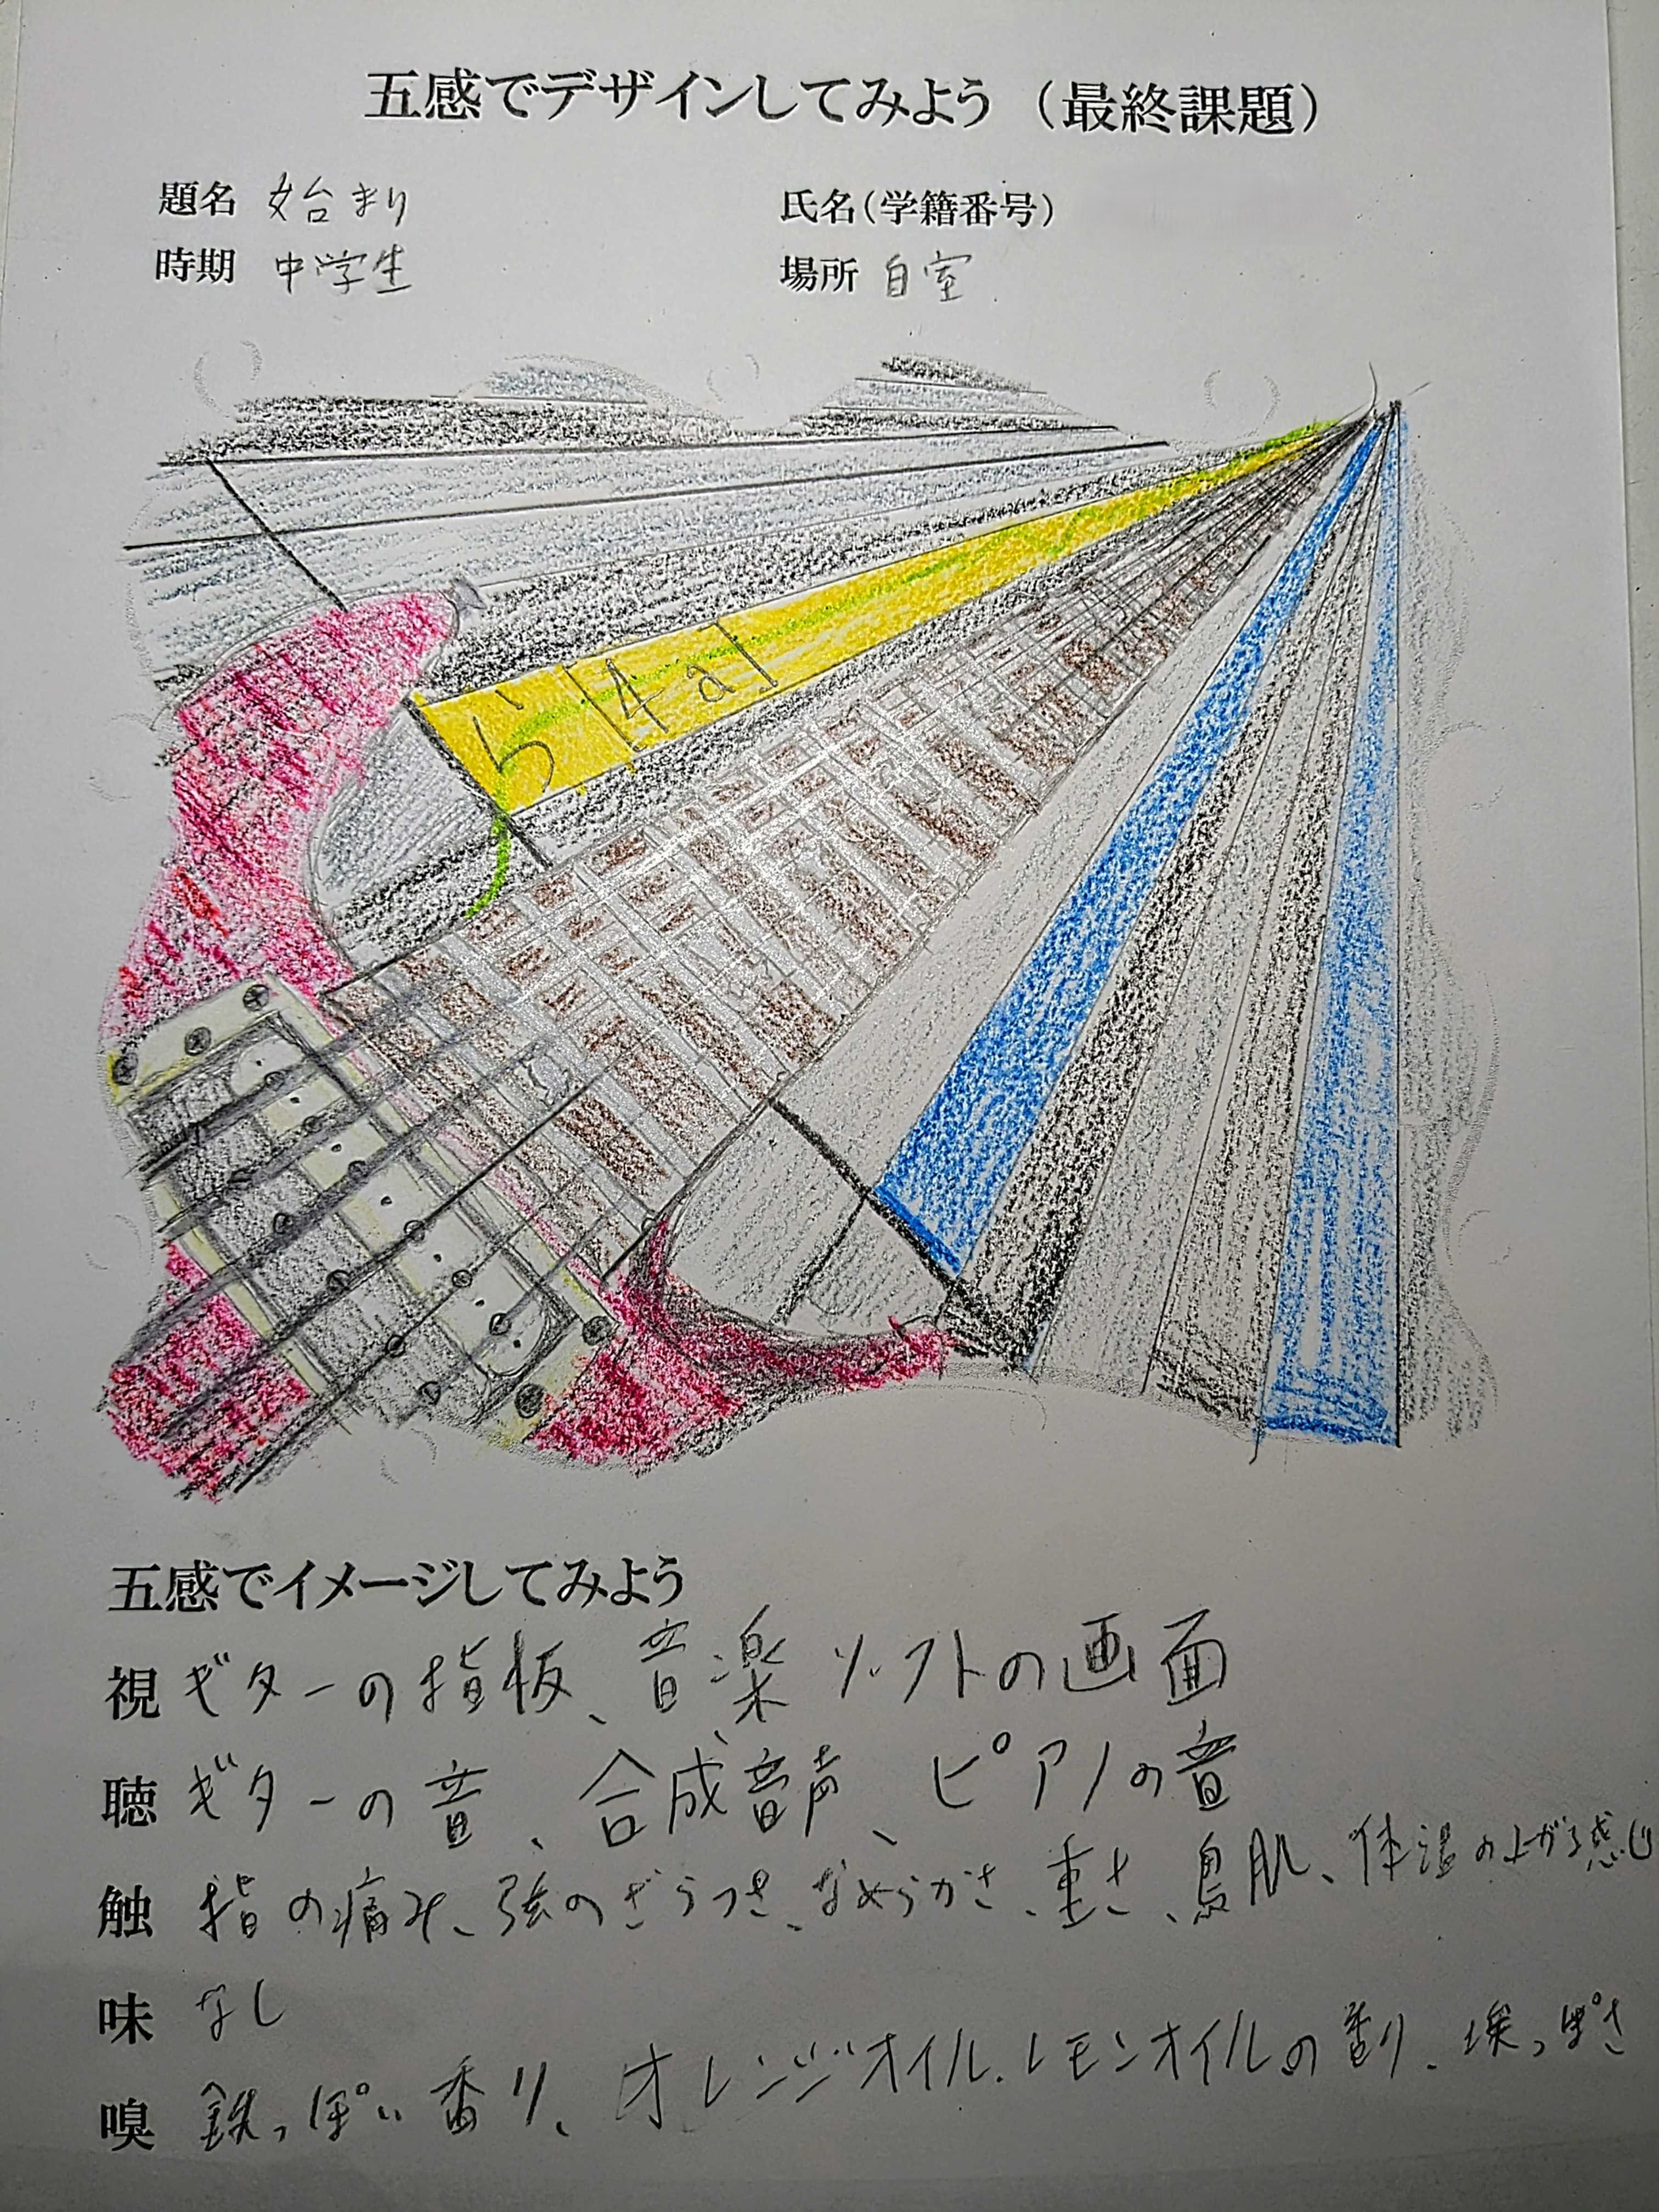 五感でデザインしてみよう（最終課題）
題名 始まり
氏名（学籍番号）
時期 中学生
場所 自室
ら [4a]
五感でイメージしてみよう
視 ギターの指板、音楽ソフトの画面
聴 ギターの音、合成音声、ピアノの音
触 指の痛み、弦のざらつき、なめらかさ、重さ、鳥肌、体温の上がる感じ
味 なし
嗅 鉄っぽい香り、オレンジオイル、レモンオイルの香り、埃っぽさ